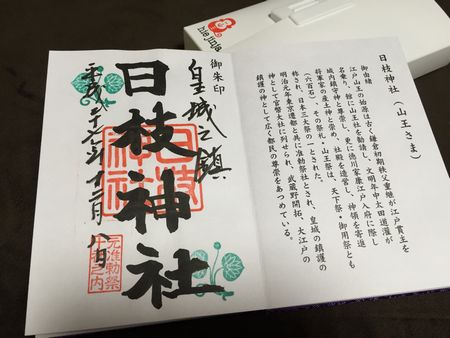 日枝神社（山王さま）
御由緒
江戸山王の始源は古く鎌倉初期秩父重継が江戸貫主を
名乗り、館に山王社を勧請し、文明年中太田道灌が
城内鎮守神と尊崇し、更に徳川家康江戸入府に際し
将軍家の産土神と崇め、社殿を造営し、神領を寄進
（六百石）、その祭礼・山王祭は、天下祭・御用祭とも
称され、日本三大祭の一とされた。
明治元年東京遷都と共に准勅祭社とされ、皇城の鎮護の
神として官幣大社に列せられ、武蔵野開拓、大江戸の
鎮護の神として広く都民の尊崇をあつめている。
御朱印
皇城之鎮
日枝神社
日枝神社
元准勅祭
十社之内
平成
年十二月八日
hie jinja